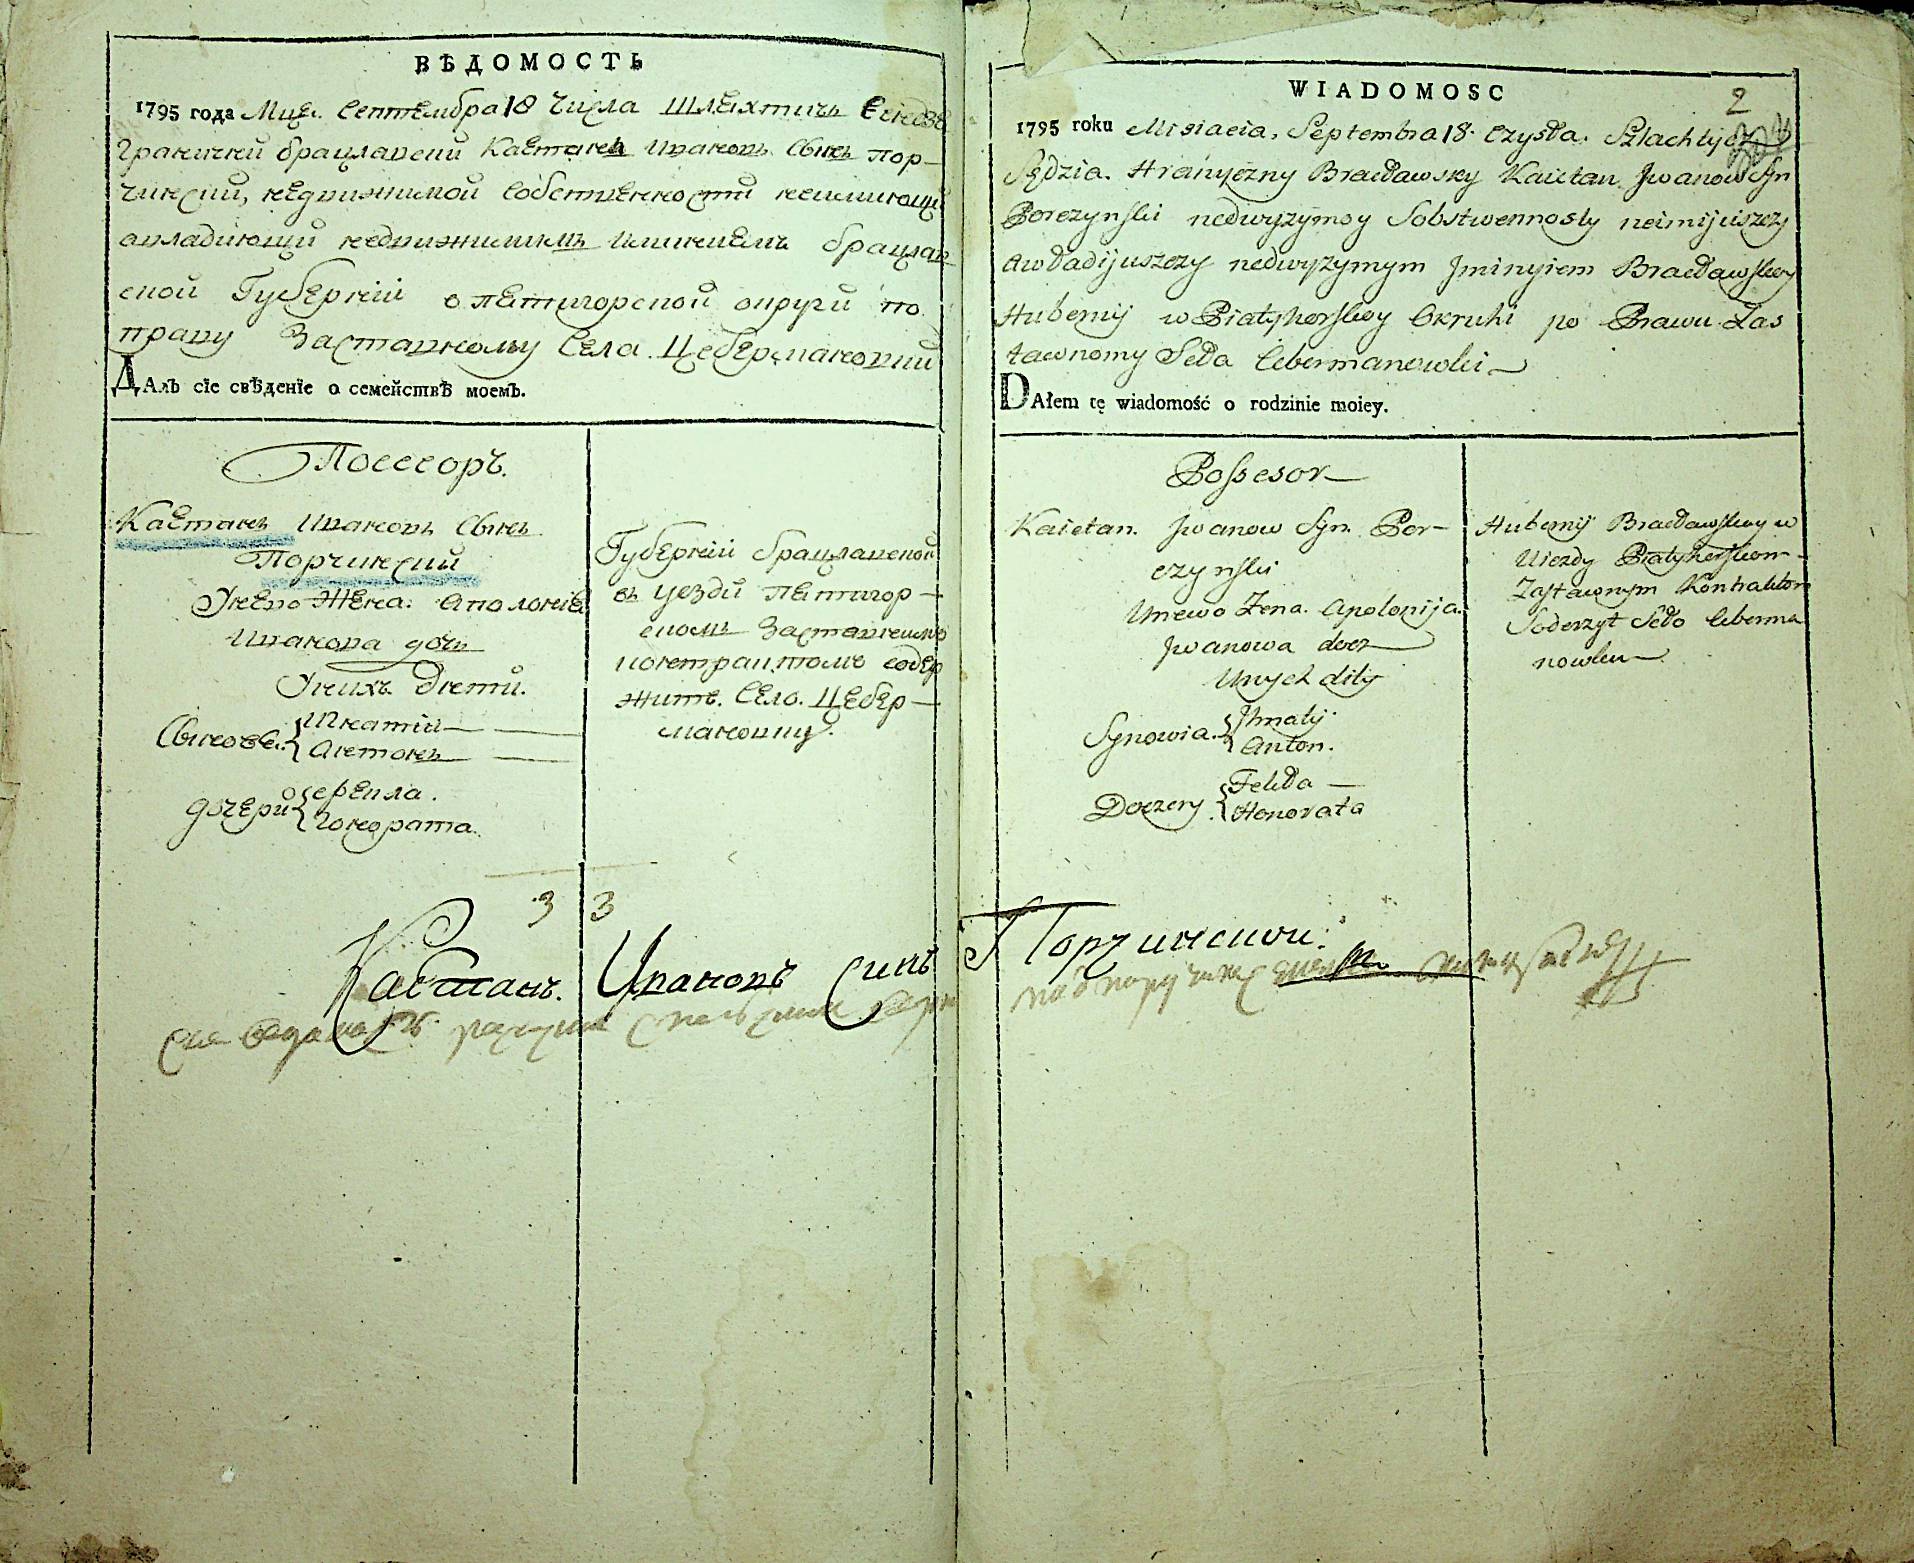 ВѢДОМОСТЬ
1795 года Мца. Септембра 18 числа Шляхтичъ
Граничній брацлавскій Каетанъ Ивановъ Сынъ Пор-
чинскій, недвижимой собственности неимиющи
авладиющи недвижимымъ иминиемъ брацлав
ской Губерній в пятигорской округи по
праву Заставному Села Цебермановки
ДАлъ сіе свѣденіе о семействѣ моемъ.
Посессоръ.
Каетанъ Ивановъ Сынъ
Порчинскій
Унево Жена. Аполония
Иванова дочь
Унихъ Дети.
Сынове. Игнатій
Антонъ
дочери
Гонората.
Губерній брацлавской
въ уезди Пятигор-
скомъ Заставнимъ
контрактомъ содер
житъ. Село. Цебер-
мановку.
3 3
Каетанъ. Ивановъ Синъ
WIADOMOSC
2
1795 roku Misiacia, Septembra 18. Czysła. Szlachtycz
Sędzia. Hranyczny Bracławsky Kaietan Jwanow Syn
Porczynski nedwyzymoy Sobstwennosty neimijuszczy
awładijuszczy nedwyzymym Jminyiem Bracławskoy
Hubernij w Piatyhorskoy Okruhi po Prawu Zas
tawnomy Seła Cebermanowki
DAłem tę wiadomość o rodzinie moiey.
Possesor
Kaietan. Jwanow Syn Por-
czynski
Unewo Żena. Apolonija.
Jwanowa docz
Unych dity
Synowia. Ihnatij
Anton.
Doczery Felicia
Honorata
Hubernij Bracławskoy w
Uiezdy Piatyhorskom
Zastawnym Kontraktom
Soderzyt SełoCeberma
nowku
Порчинскои.